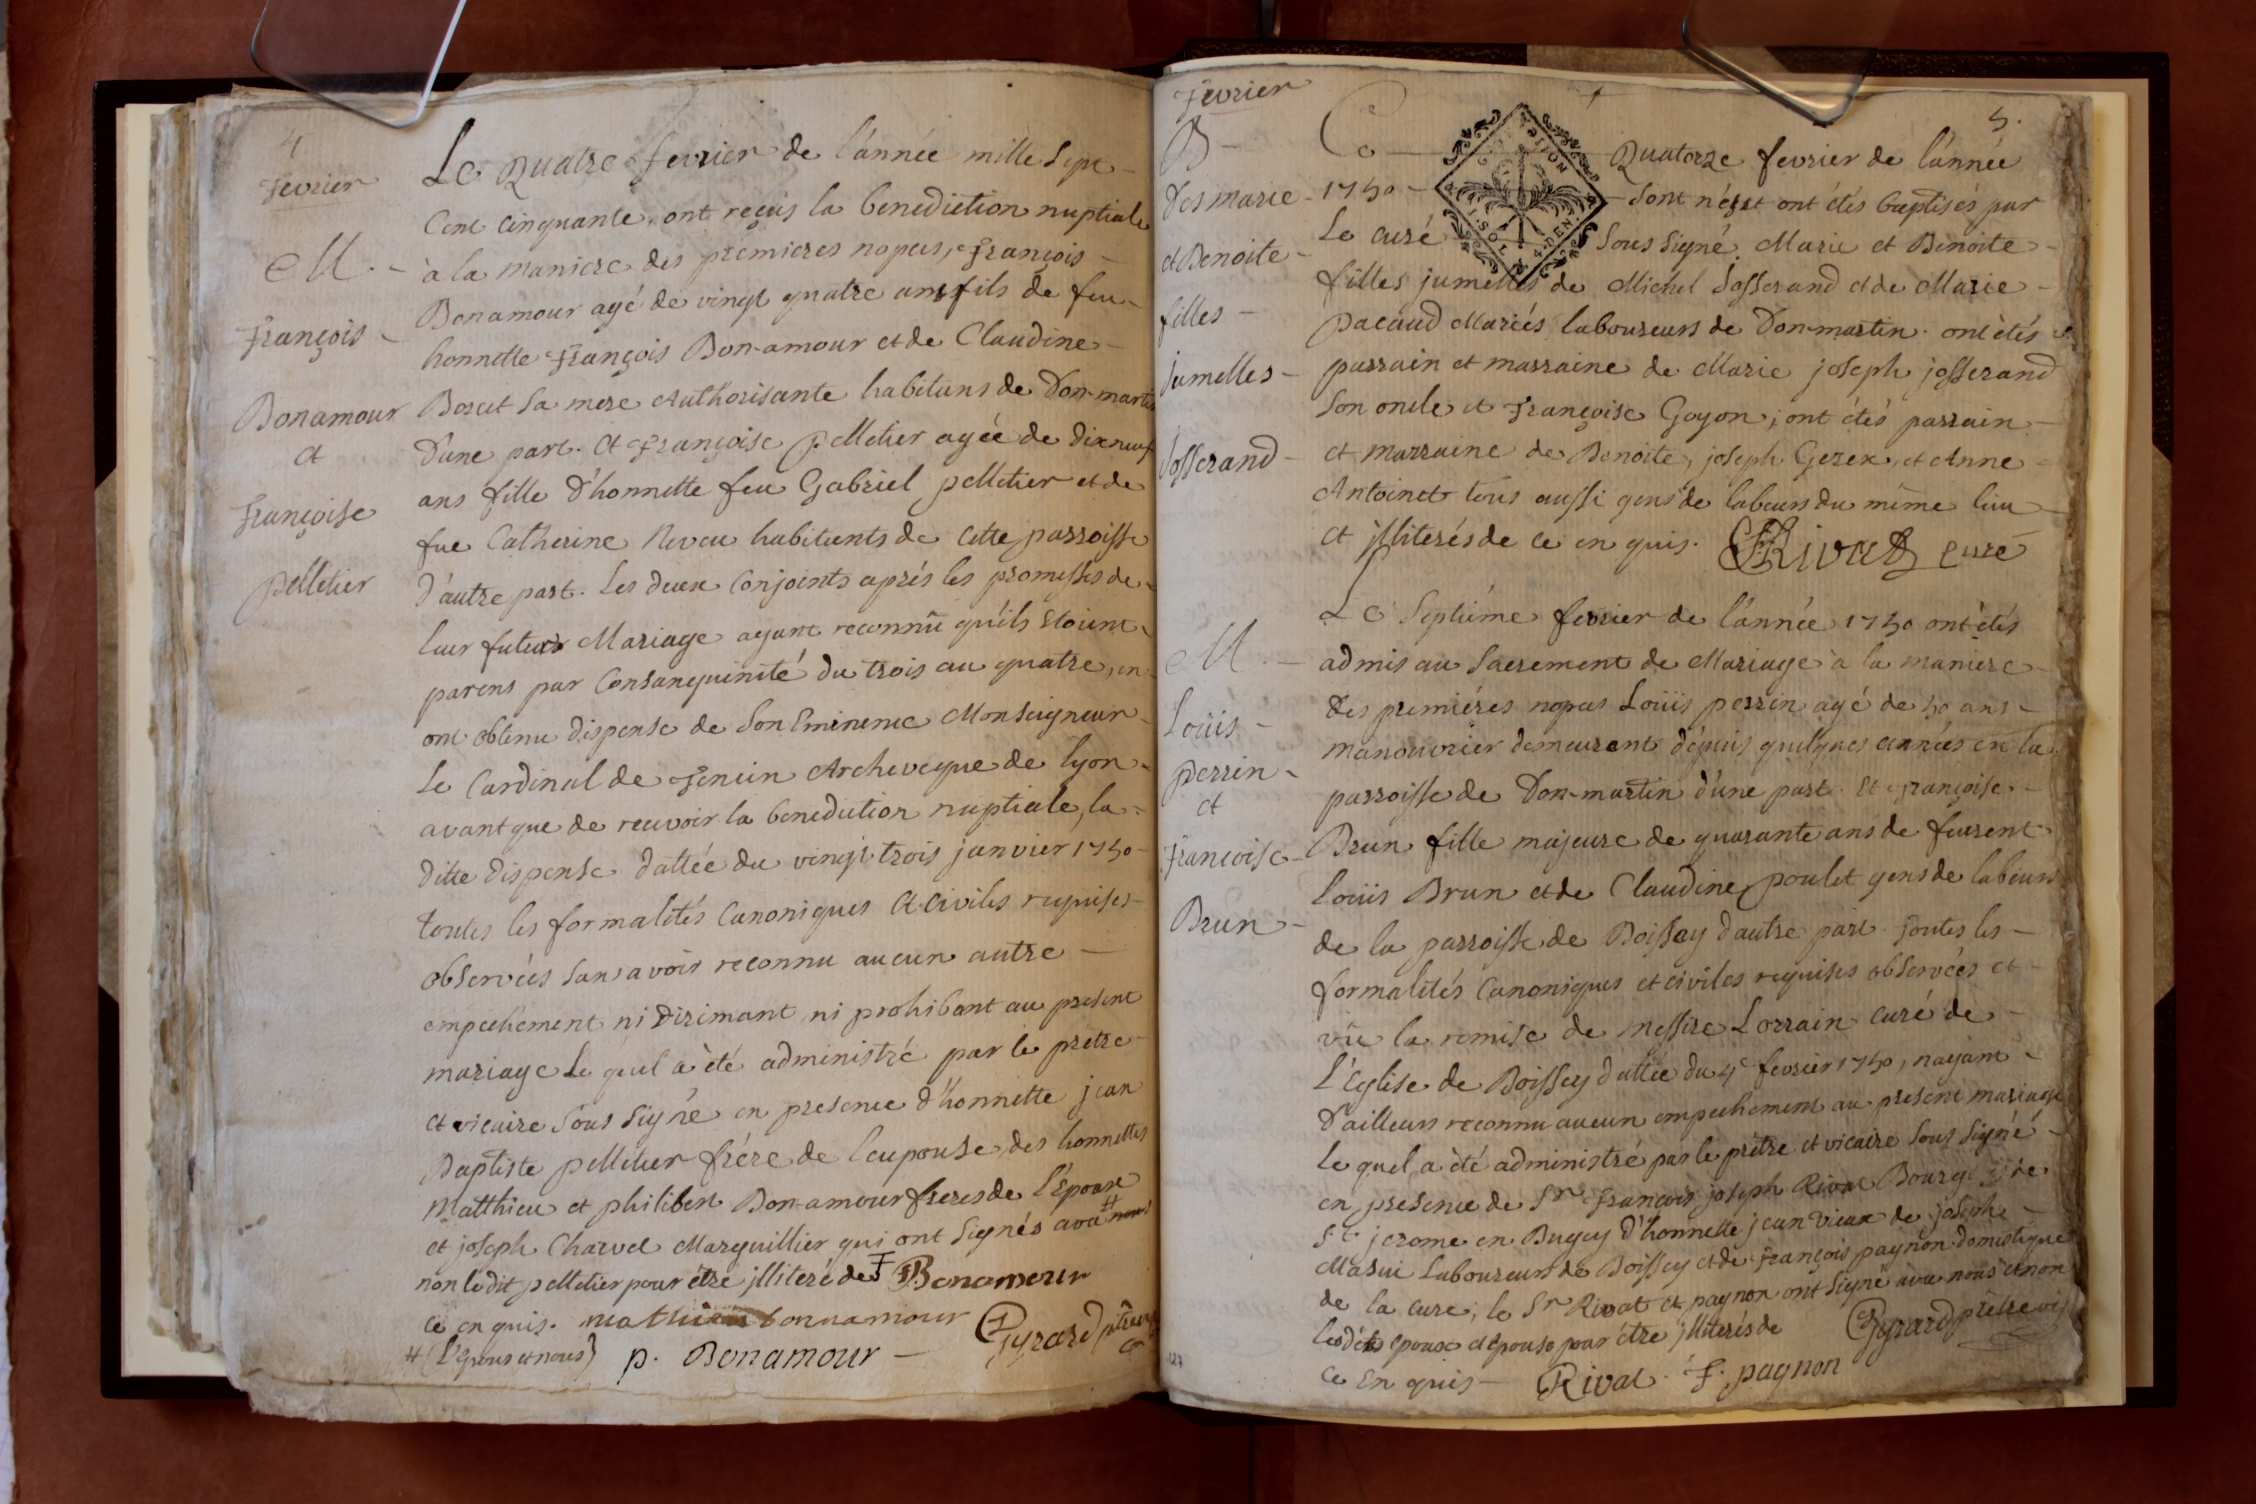 4
fevrier
M.
françois
Bonamour
et
françoise
pelletier
Le Quatre fevrier de l'année mille sept
Cent cinquante, ont reçus la benediction nuptiale
à la maniere des premieres nopces, françois
Bonamour agé de vingt quatre ans fils de feu
honnette françois Bon-amour et de Claudine
Borat Sa mere Authorisante habitans de Don-martin
d'une part. et françoise pelletier agée de dixneuf
ans fille d'honnette feu Gabriel pelletier et de
fue Catherine Neveu habitants de cette parroisse
d'autre part. Les deux Conjoints aprés les promesses de
leur futur Mariage ayant reconnû qu'ils Etoint
parens par Consanguinité du trois au quatre, en
ont obtenu dispense de Son Eminence Monseigneur
Le Cardinal de Tencin Archeveque de lyon
avant que de recevoir la benediction nuptiale, la
ditte dispense dattée du vingt trois janvier 1750
toutes les formalités Canoniques et Civiles requises
observées sans avoir reconnu aucun autre
empechement ni dirimant ni prohibant au present
mariage Le quel a été administré par le prêtre
et vicaire Sous Signé en presence d'honnette jean
Baptiste pelletier frére de l'epouse, des honnettes
Matthieu et philibert Bon-amour freres de l'Epoux
et joseph Charvet Marguillier qui ont Signés avec # nous
non le dit pelletier pour étre jlliteré de ‡ Bonamour
ce enquis. mathieu bonnamour Gyrard ptre vic
# (l'Epoux et nous) p. Bonamour
fevrier
5.
B
Des marie
et Benoite
filles
jumelles
Josserand
Ce Quatorze fevrier de l'année
1750 sont nées et ont étés baptisés par
Le curé Sous Signé, Marie et Benoite
filles jumelles de Michel Josserand et de Marie
pacaud Mariés laboureurs de Don-martin. ont étés
parrain et marraine de Marie joseph josserand
Son oncle et françoise Goyon; ont étés parrain
et marraine de Benoite, joseph Gerex, et Anne
Antoinet tous aussi gens de labeurs du même lieu
et jlliterés de ce enquis. Rivat curé
M.
Loüis
perrin
et
françoise
Brun
Le Septiéme fevrier de l'année 1750 ont étés
admis au Sacrement de Mariage à la maniere
des premiéres nopces Loüis perrin agé de 50 ans
manouvrier demeurant depuis quelques années en la
parroisse de Don-martin d'une part. Et françoise
Brun fille majeure de quarante ans de fuerent
Loüis Brun et de Claudine poulet gens de labeurs
de la parroisse de Boissey d'autre part. toutes les
formalités Canoniques et civiles requises observées et
vû la remise de messire Lorrain curé de
l'Eglise de Boissey dattée du 4e fevrier 1750, nayant
d'ailleurs reconnu aucun empechement au present mariage
le quel a été administré par le prêtre et vicaire Sous Signé
en presence de Sr françois joseph Rivat Bourg. de
St. jerome en Bugey d'honnette jean vieux de joseph
Masui Laboureurs de Boissey et de françois pagnon domestique
de la cure, le Sr Rivat et pagnon ont Signé avec nous et non
lesdits epoux et epouse pour étre jlliterés de Gyrard prêtre vic
ce Enquis Rivat. f. pagnon
127